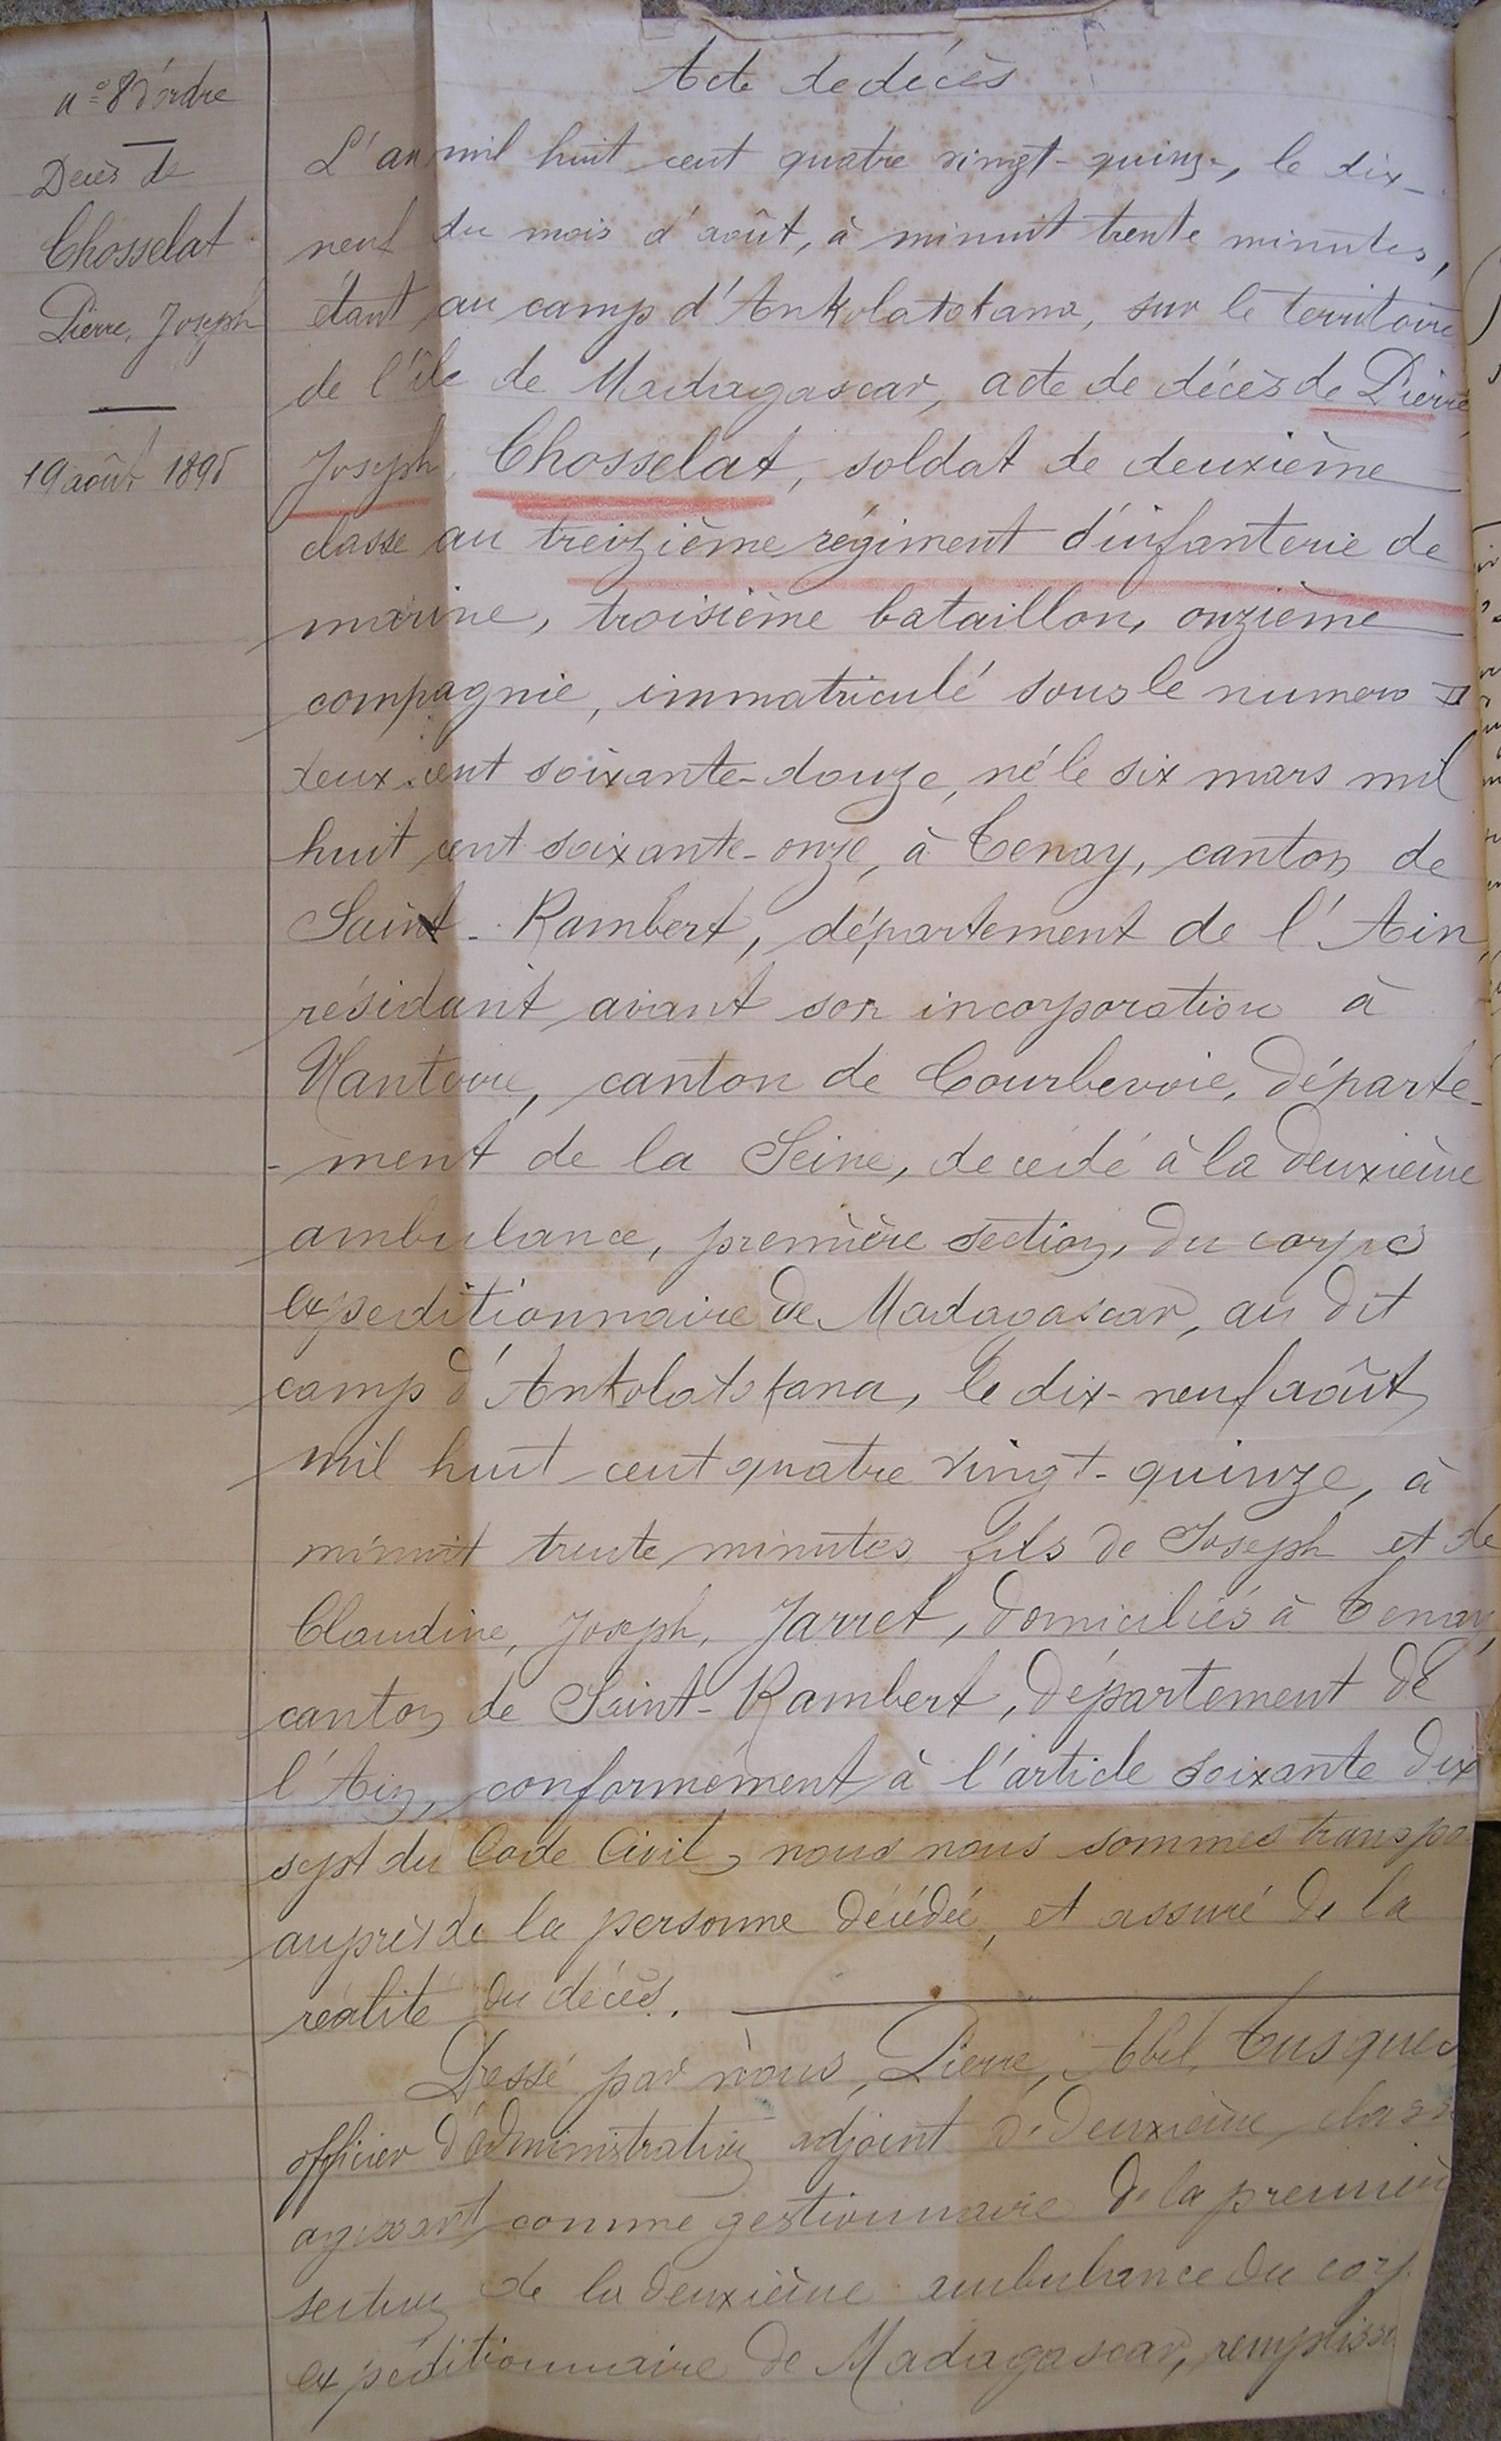 Acte de décès
n° 8 d'ordre
Décès de
Chosselat
Pierre, Joseph
19 août 1895
L'an mil huit cent quatre vingt-quinze, le dix-
neuf du mois d'août, à minuit trente minutes,
étant au camp d'Ankolatokana, sur le territoire
de l'île de Madagascar, acte de décès de Pierre,
Joseph, Chosselat, soldat de deuxième
classe au treizième régiment d'infanterie de
marine, troisième bataillon, onzième
compagnie, immatriculé sous le numero
deux cent soixante-douze, né le six mars mil
huit cent soixante-onze, à Tenay, canton de
Saint-Rambert, département de l'Ain,
résidant avant son incorporation à
Nanterre, canton de Courbevoie, départe-
-ment de la Seine, decédé à la deuxième
ambulance, première section, du corps
expeditionnaire de Madagascar, au dit
camp d'Ankolatokana, le dix-neuf août
mil huit cent quatre vingt-quinze, à
minuit trente minutes, fils de Joseph et de
Claudine, Joseph, Jarret, domiciliés à Tenay,
canton de Saint-Rambert, département de
l'Ain, conformément à l'article soixante dix
sept du Code Civil, nous nous sommes transpo
auprès de la personne décédée, et assuré de la
réalité du décès.
Dressé par nous, Pierre, Abel, Tusques
officier d'administration adjoint de deuxième classe
agissant comme gestionnaire de la première
section de la deuxième ambulance du corp
expéditionnaire de Madagascar, remplissa